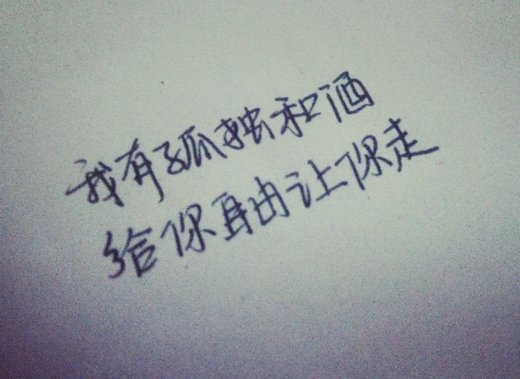 我有孤独和酒
给你自由让你走